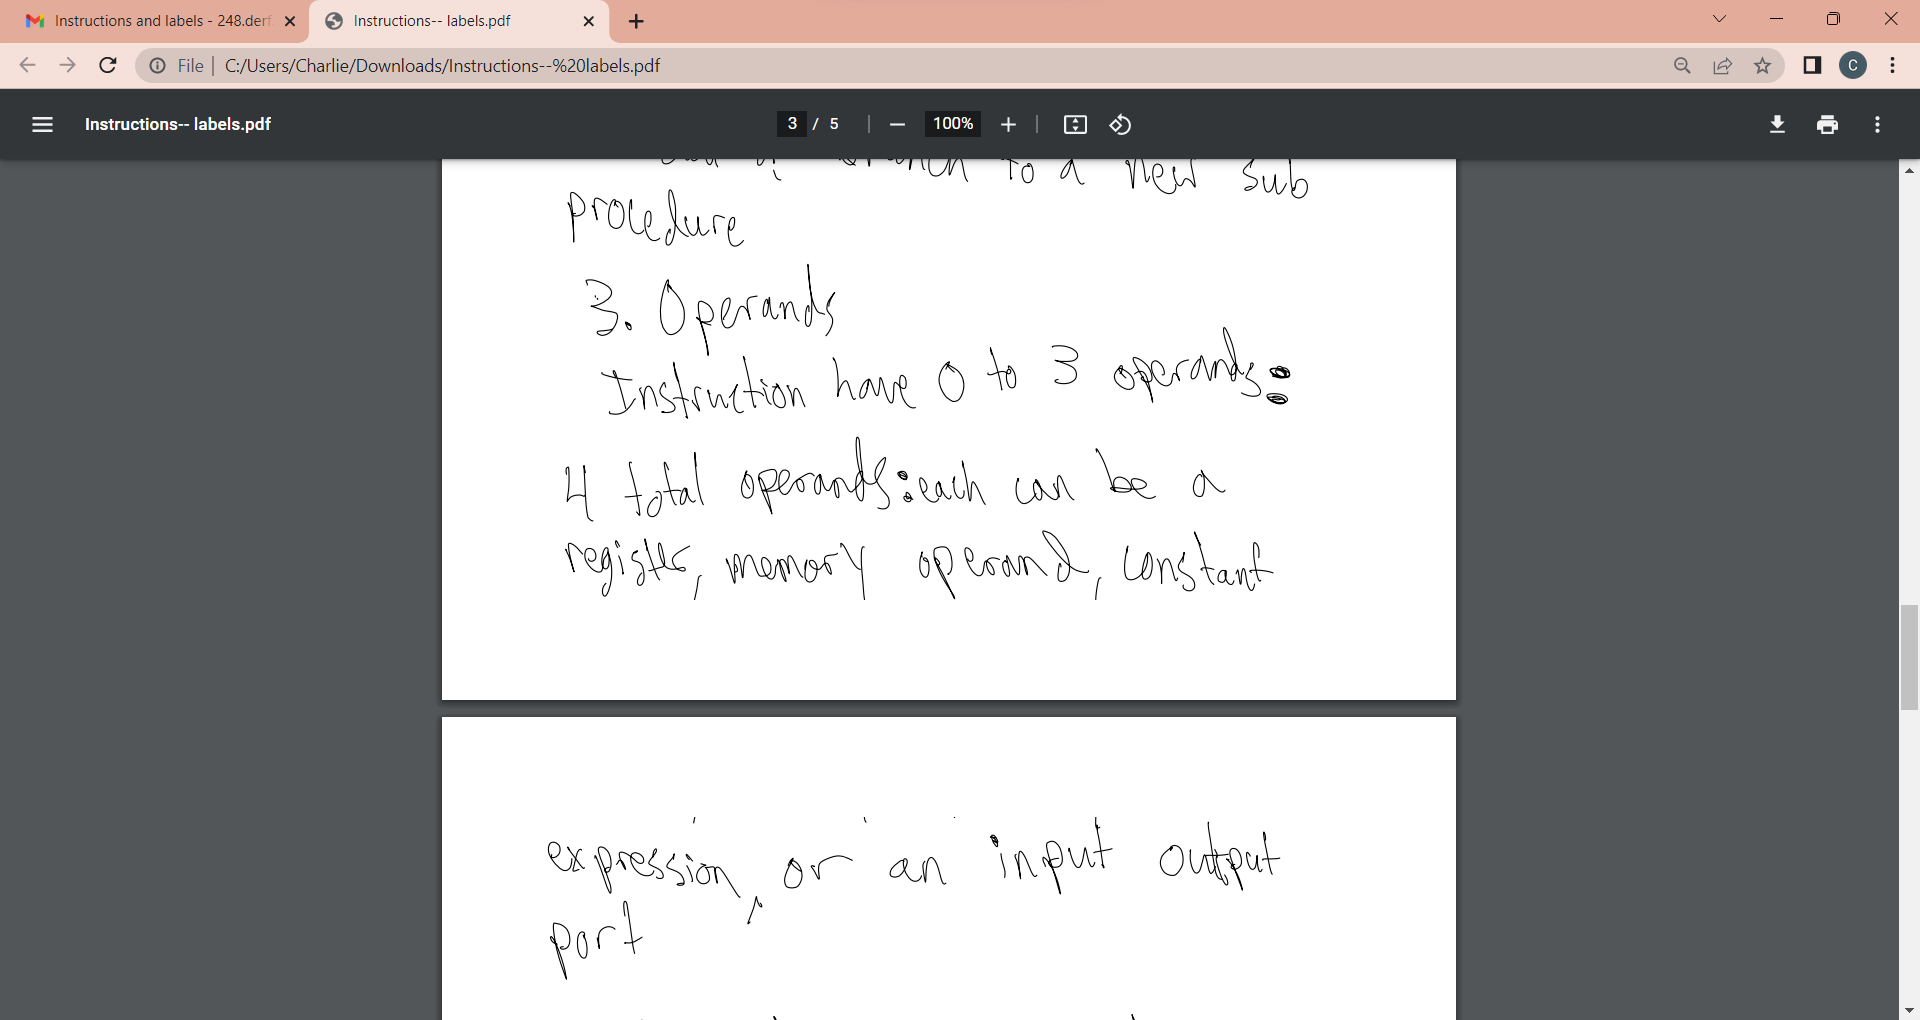 Instructions and labels - 248.derf
Instructions-- labels.pdf
File
C:/Users/Charlie/Downloads/Instructions--%20labels.pdf
C
Instructions-- labels.pdf
3 / 5
100%
to a new sub
procedure
3. Operands
Instruction have 0 to 3 operands:
4 total operands: each can be a
register, memory operand, constant
expression, or an input output
port